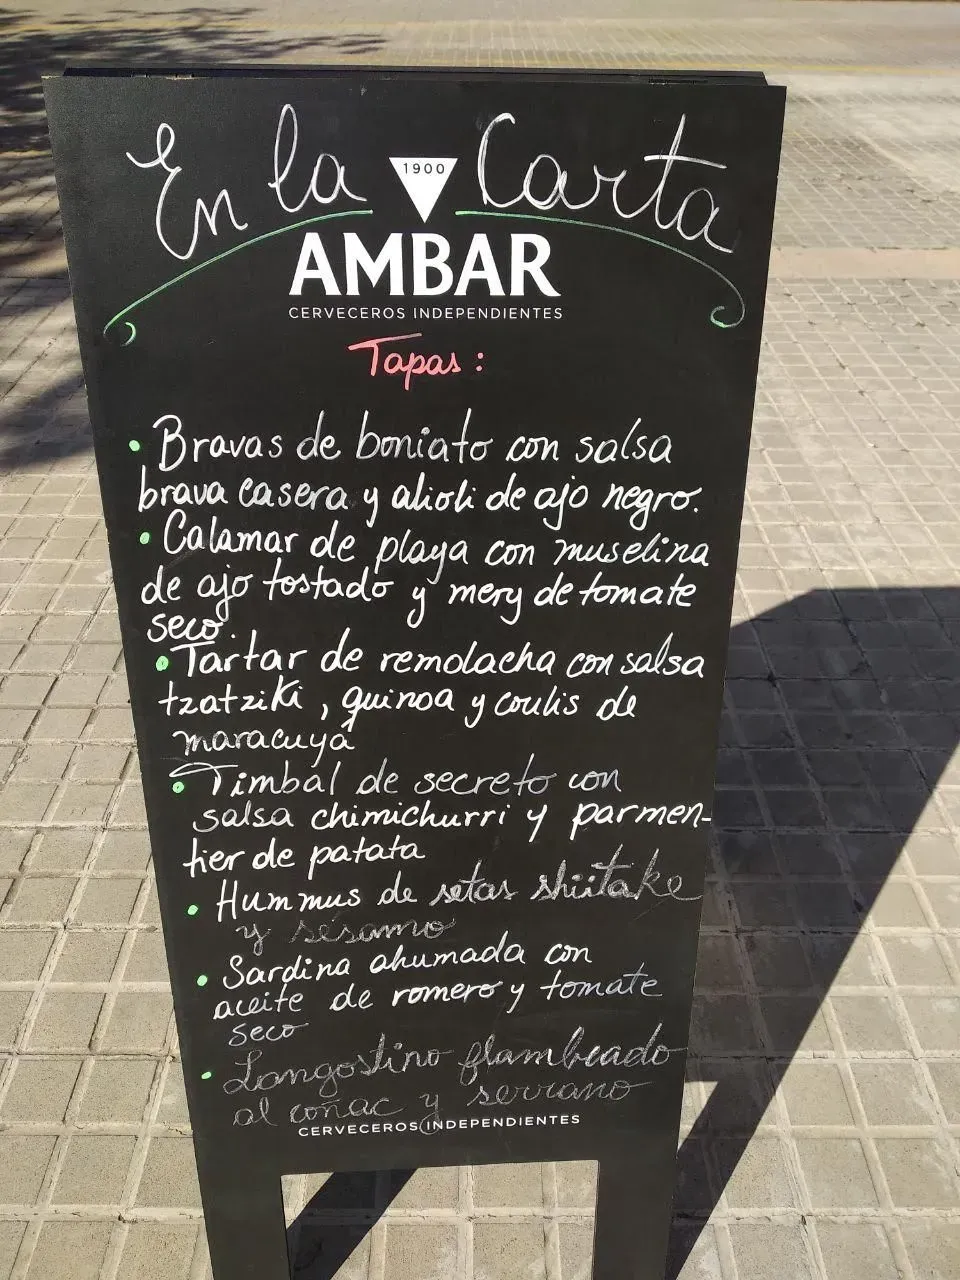 En la Carta
1900
AMBAR
CERVECEROS INDEPENDIENTES
Tapas:
• Bravas de boniato con salsa
brava casera y alioli de ajo negro.
• Calamar de playa con muselina
de ajo tostado y mery de tomate
seco.
• Tartar de remolacha con salsa
tzatziki, quinoa y coulis de
maracuyá
• Timbal de secreto con
salsa chimichurri y parmen-
tier de patata
• Hummus de setas shiitake
y sésamo
• Sardina ahumada con
aceite de romero y tomate
seco
• Langostino flambeado
al coñac y serrano
CERVECEROS INDEPENDIENTES